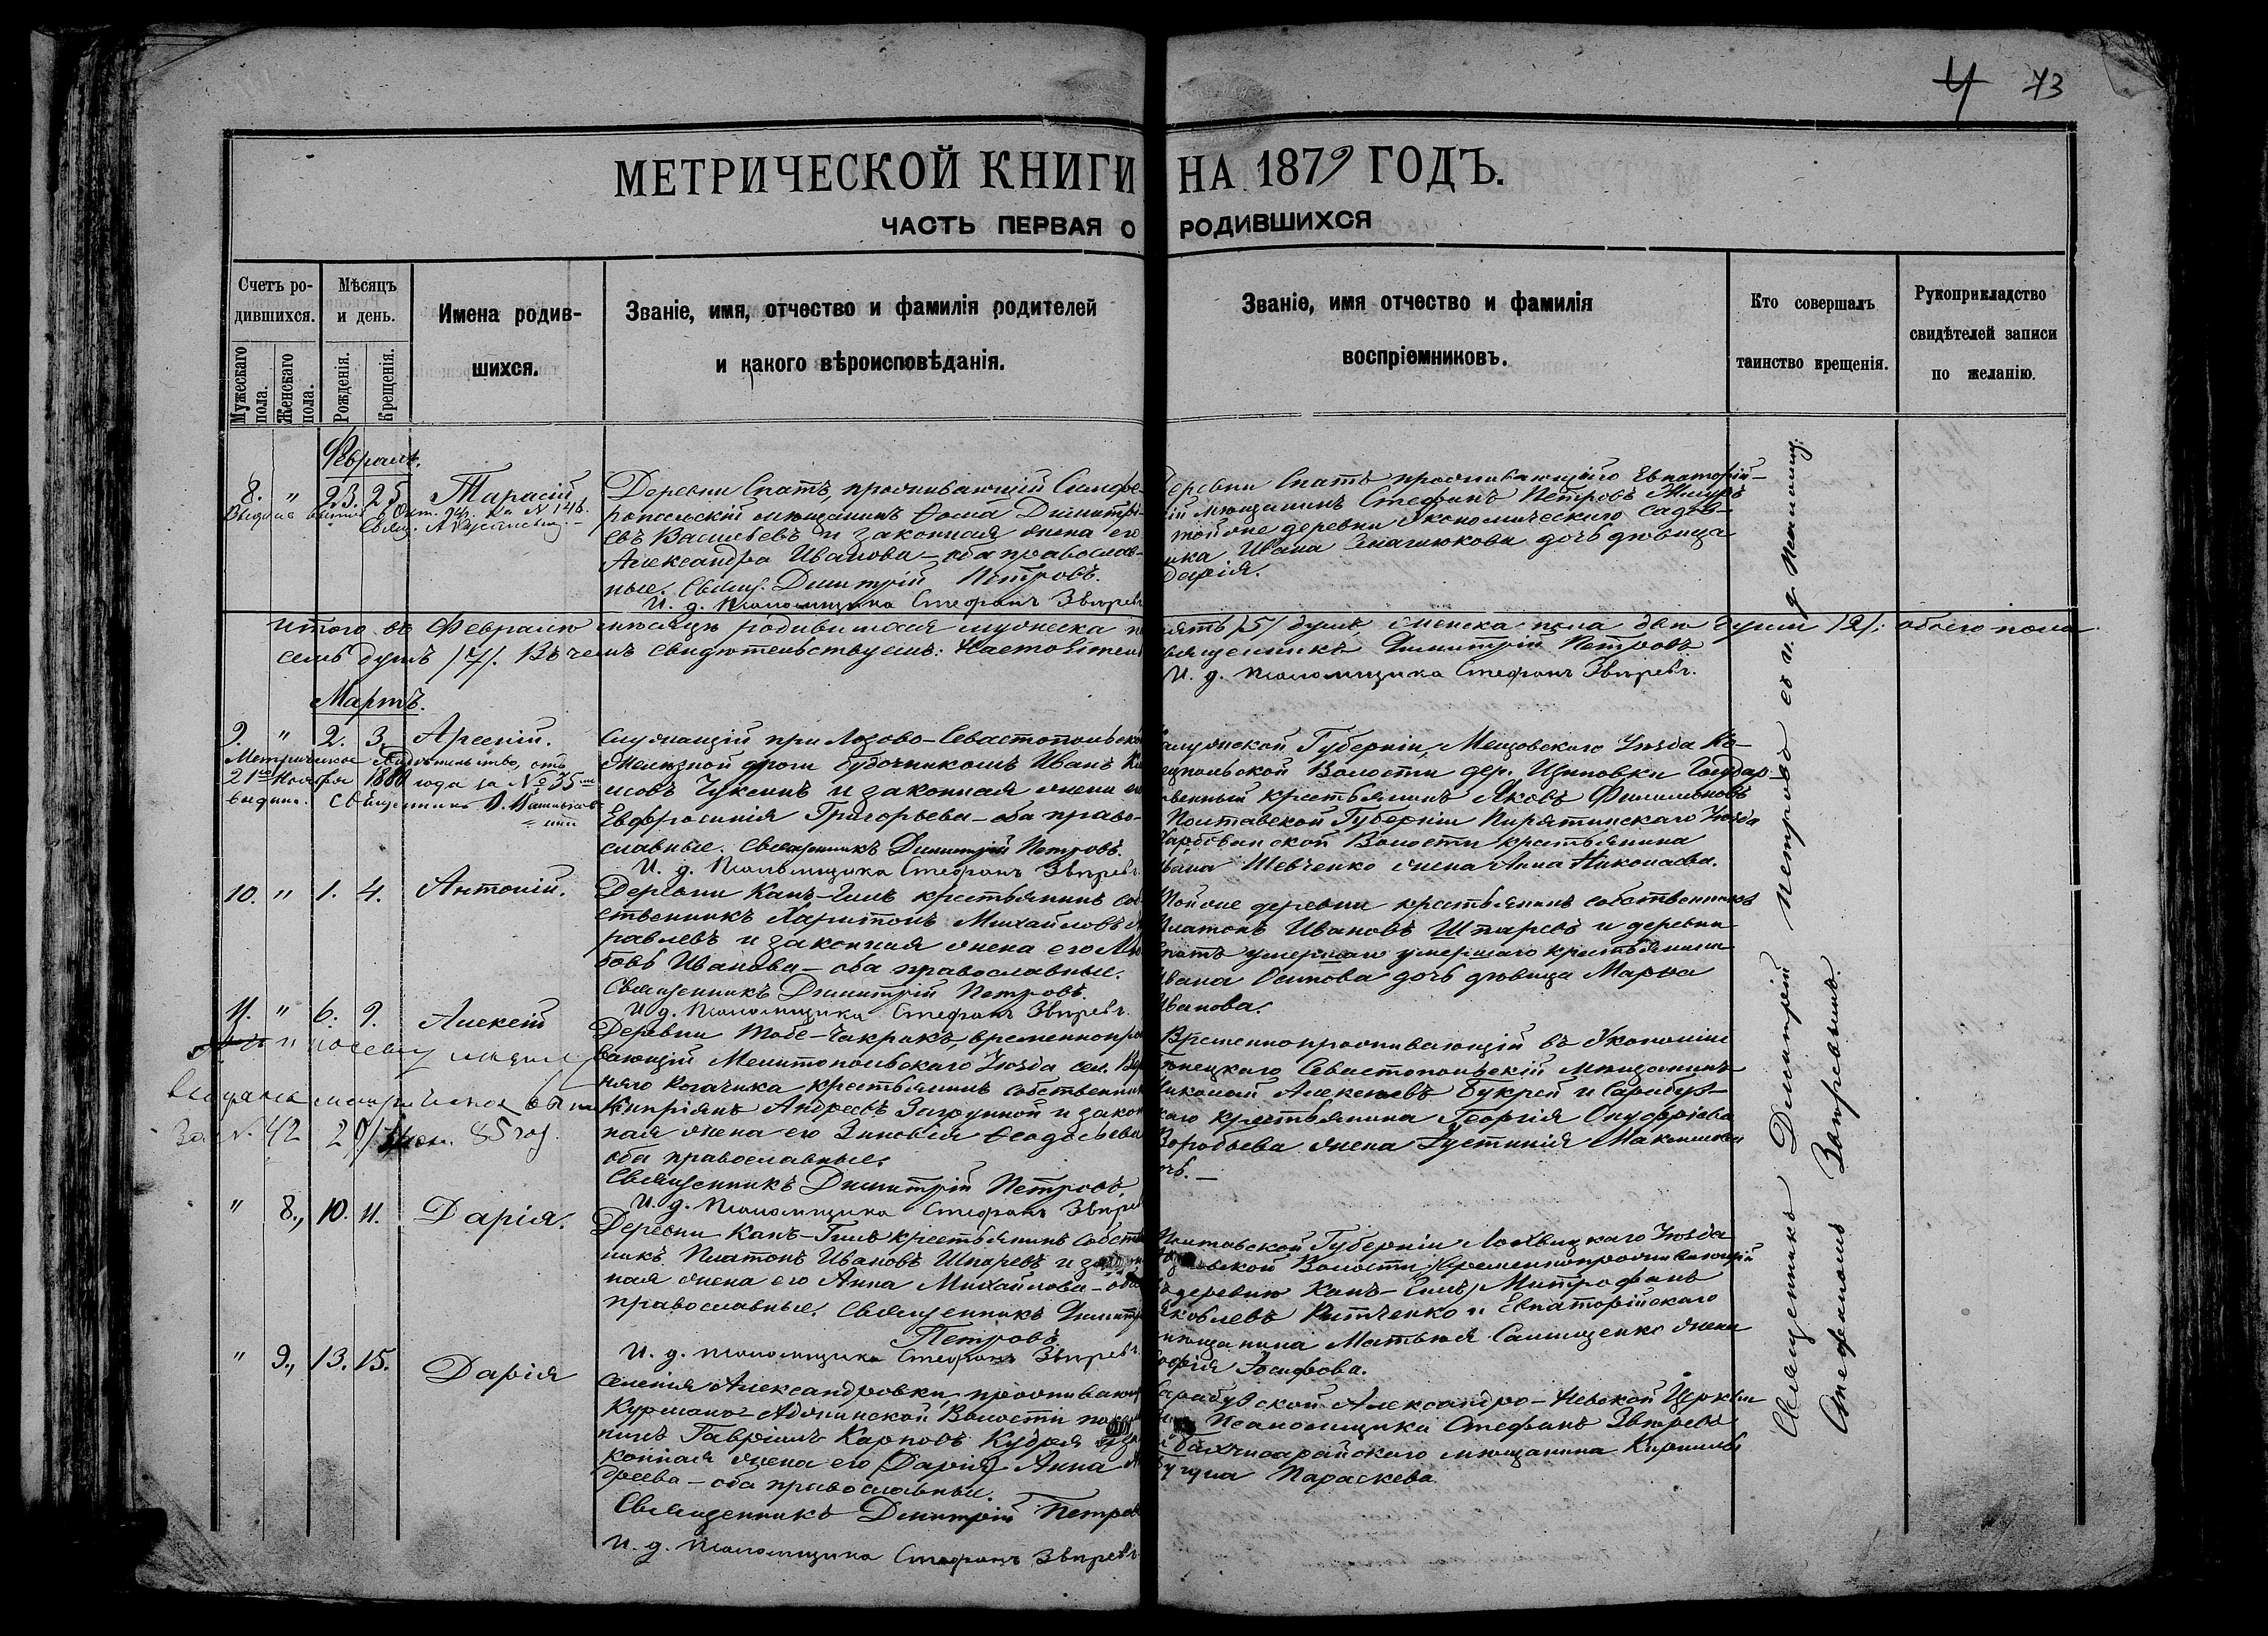 4 73
МЕТРИЧЕСКОЙ КНИГИ НА 1879 ГОДЪ.
ЧАСТЬ ПЕРВАЯ О РОДИВШИХСЯ
Счетъ родившихся.
Мужескаго пола.
Женскаго пола.
Мѣсяцъ и день.
Рожденія.
Крещенія.
Имена родив-
шихся.
Званіе, имя, отчество и фамилія родителей
и какого вѣроисповѣданія.
Званіе, имя отчество и фамилія
воспріемниковъ.
Кто совершалъ
таинство крещенія.
Рукоприкладство
свидѣтелей записи
по желанію.
Февраль.
8. " 23. 25. Тарасій
за № 146.
Деревни Спатъ, проживающій Симфе-
ропольскій мѣщанинъ Ѳома Димитрі-
евъ Васильевъ и законная жена его
Александра Иванова – оба православ-
ные. Свящ. Димитрій Петровъ.
И. д. Псаломщика Стефанъ Звѣревъ
деревни Спатъ проживающаго Евпаторій-
кій мѣщанинъ Стефанъ Петровъ
той же деревни экономическаго садов-
ника Ивана дочь дѣвица
Дарія.
Итого въ Февралѣ мѣсяцѣ родившихся мужеска
пять /5/ душъ, женска пола двѣ души /2/: обоего пола
семь душъ /7/. Въ чемъ свидѣтельствуемъ: Настоятель
Священникъ Димитрій Петровъ
И. д. Псаломщика Стефанъ Звѣревъ.
Мартъ.
9. " 2. 3. Арсеній.
Метрическое свидѣтельство, отъ
21го Ноября 1888 года за № 35м
выдано. Священникъ
Служащій при Лозово-Севастопольской
желѣзной дроги будочникомъ Иванъ
мовъ Чукинъ и законная жена его
Евфросинія Григорьева – оба право-
славные. Священникъ Димитрій Петровъ.
И. д. Псаломщика Стефанъ Звѣревъ.
Калужской Губерніи, Мещовскаго Уѣзда
польской Волости дер. Щиповки Государ-
ственный крестьянинъ Яковъ Филимоновъ
и Полтавской Губерніи Пирятинскаго Уѣзда
ской Волости крестьянина
Ивана Шевченко жена Анна Николаева.
10. " 1. 4. Антоній.
Деревни Канъ-Гилъ крестьянинъ соб-
ственникъ Харитонъ Михайловъ
равлевъ и законная жена его Лю-
бовь Иванова – оба православные.
Священникъ Димитрій Петровъ.
И. д. Псаломщика Стефанъ Звѣревъ.
Той же деревни крестьянинъ собственникъ
Платонъ Ивановъ Шпаревъ и деревни
Спатъ умершаго умершаго крестьянина
Ивана Осипова дочь дѣвица Марѳа
Иванова.
11. " 6. 9. Алексій
за № 42 85 год
Деревни Тобе-Чакракъ, временнопро
вающій Мелитопольскаго Уѣзда сел. Вер
няго Рогачика крестьянинъ собственникъ
Кипріянъ Андреевъ Загрунной и закон
ная жена его Зиновія Ѳеодосьева
оба православные.
Священникъ Димитрій Петровъ.
И. д. Псаломщика Стефанъ Звѣревъ
Временнопроживающій въ Экономіи
Севастопольскій мѣщанинъ
Николай Алексѣевъ Букрей и Сарабуз-
скаго крестьянина Георгія Онуфріева
Воробьева жена Іустинія Максимова
" 8., 10. 11. Дарія.
Деревни Канъ-Гилъ крестьянинъ собст
никъ Платонъ Ивановъ Шпаревъ и
ная жена его Анна Михайлова – оба
православные. Священникъ Димитр
Петровъ
И. д. Псаломщика Стефанъ Звѣревъ.
Полтавской Губерніи Лохвицкаго Уѣзда
Волости временнопроживающій
въ деревню Канъ-Гилъ, Митрофанъ
Яковлевъ Ритченко и Евпаторійскаго
мѣщанина Матвѣя Самищенко жена
Софія Іосифова.
" 9., 13. 15. Дарія
Селенія Александровки, проживающ
Курмано-Аджинской Волости
нинъ Гавріилъ Карповъ Кудря
конная жена его (Дарія) Анна
дреева – оба православные.
Священникъ Димитрій Петровъ
И. д. Псаломщика Стефанъ Звѣревъ
Сарабузской Александро-Невской Церкви
Псаломщика Стефанъ Звѣревъ
и Бахчисарайскаго мѣщанина Кирилла
Параскева.
Священникъ Димитрій Петровъ съ и. д. псаломщ.
Стефаномъ Звѣревымъ.